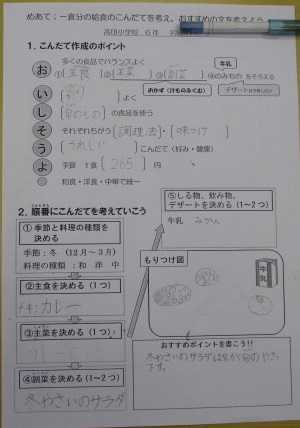 めあて：一食分の給食のこんだてを考え、おすすめの文を考えよう
高田小学校 6年
1. こんだて作成のポイント
お 多くの食品でバランスよく
①【主食】②【主菜】③【副菜】④のみものをそろえる
牛乳
おかず（汁ものもふくむ）
い【彩り】よく
し【旬のもの】の食品を使う
そ それぞれちがう【調理法】・【味つけ】
う【うれしい】こんだて（好み・健康）
よ 予算 1食【265】円
和食・洋食・中華で統一
2. 順番にこんだてを考えていこう
①季節と料理の種類を決める
季節：冬（12月～3月）
料理の種類：和 洋 中
②主食を決める（1つ）
チキンカレー
③主菜を決める（1つ）
カレー
④副菜を決める（1～2つ）
冬やさいのサラダ
⑤しる物、飲み物、デザートを決める（1～2つ）
牛乳 みかん
もりつけ図
牛乳
おすすめポイントを書こう!!
冬やさいのサラダは冬が旬のやさいです。